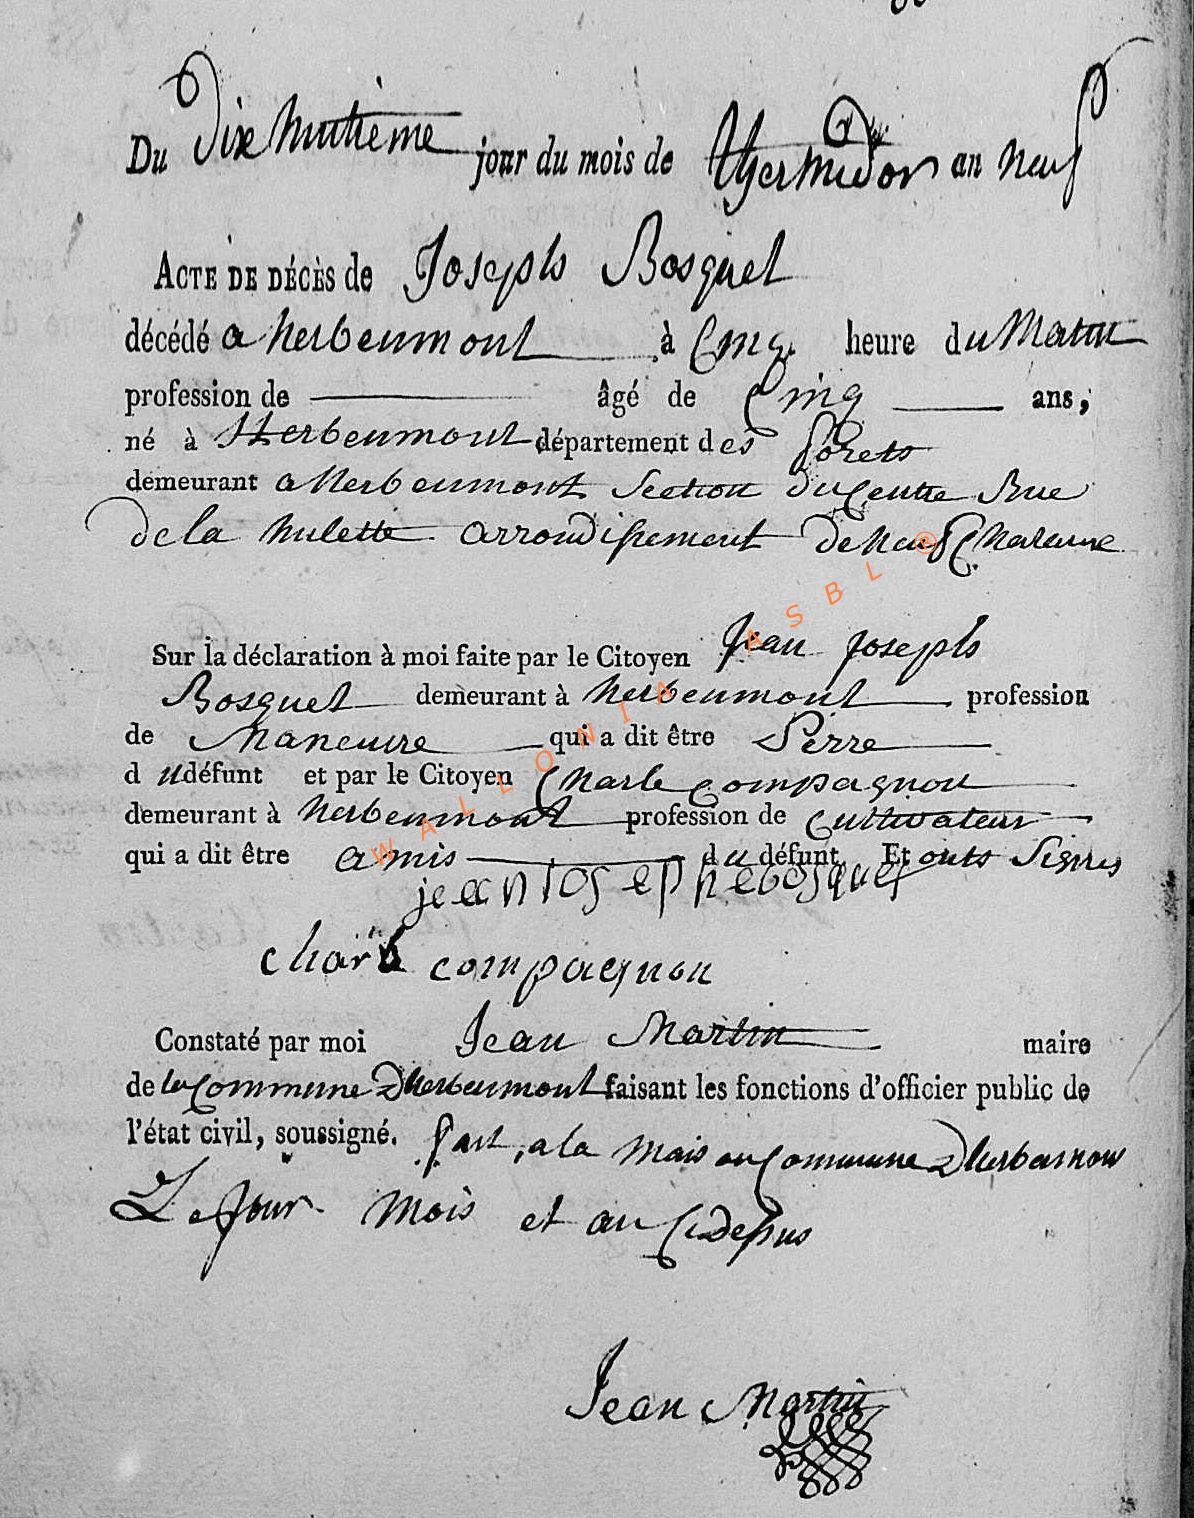 Du Dixe huitieme jour du mois de thermidor an neuf
ACTE DE DÉCÈS de Joseph Bosquet
décédé a herbeumont à Cinq heure du Matin
profession de âgé de Cinq ans,
né à Herbeumont département des forets
demeurant a herbeumont Section du Centre Rue
de la hulette arrondissement de
Sur la déclaration à moi faite par le Citoyen Jean joseph
Bosquet demeurant à herbeumont profession
de Maneuvre qui a dit être Perre
du défunt et par le Citoyen Charle Compagnon
demeurant à herbeumont profession de Cultivateur
qui a dit être amis du défunt Et onts Signes
jean iosephe bosquet
charle compagnon
Constaté par moi Jean Martin maire
de la Commune Dherbeumont faisant les fonctions d'officier public de
l'état civil, soussigné. fait, a la Maison Commune Dherbeumon
Le Jour Mois et an Cidessus
Jean Martin
WALLONIA ASBL ©